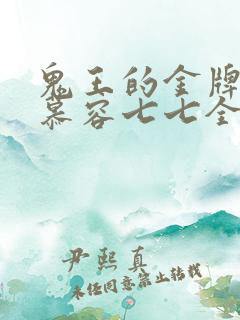 鬼王的金牌
慕容七七全
尹熙真
未经同意禁止转载